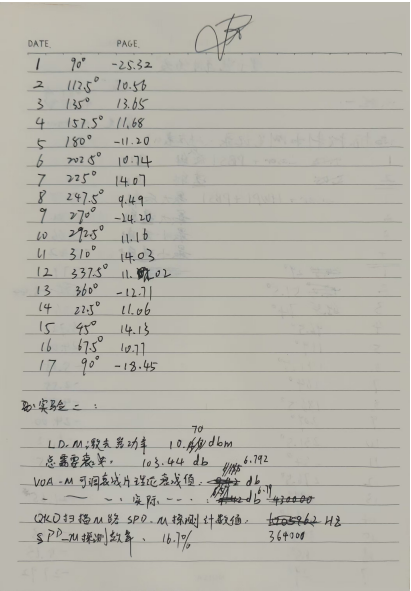 DATE. PAGE.
1 90° -25.32
2 112.5° 10.56
3 135° 13.65
4 157.5° 11.68
5 180° -11.20
6 202.5° 10.74
7 225° 14.07
8 247.5° 9.49
9 270° -24.20
10 292.5° 11.16
11 310° 14.03
12 337.5° 11.02
13 360° -12.71
14 22.5° 11.06
15 45° 14.13
16 67.5° 10.77
17 90° -18.45
实验二:
70
LD-M激光器功率 10. dbm
总需要衰减. 103.44 db 6.792
VOA-M可调衰减片理论衰减值. db 6.19
实际 db
QKD扫描M路SPD-M探测计数值. HZ
SPD-M探测效率. 16.7% 364000